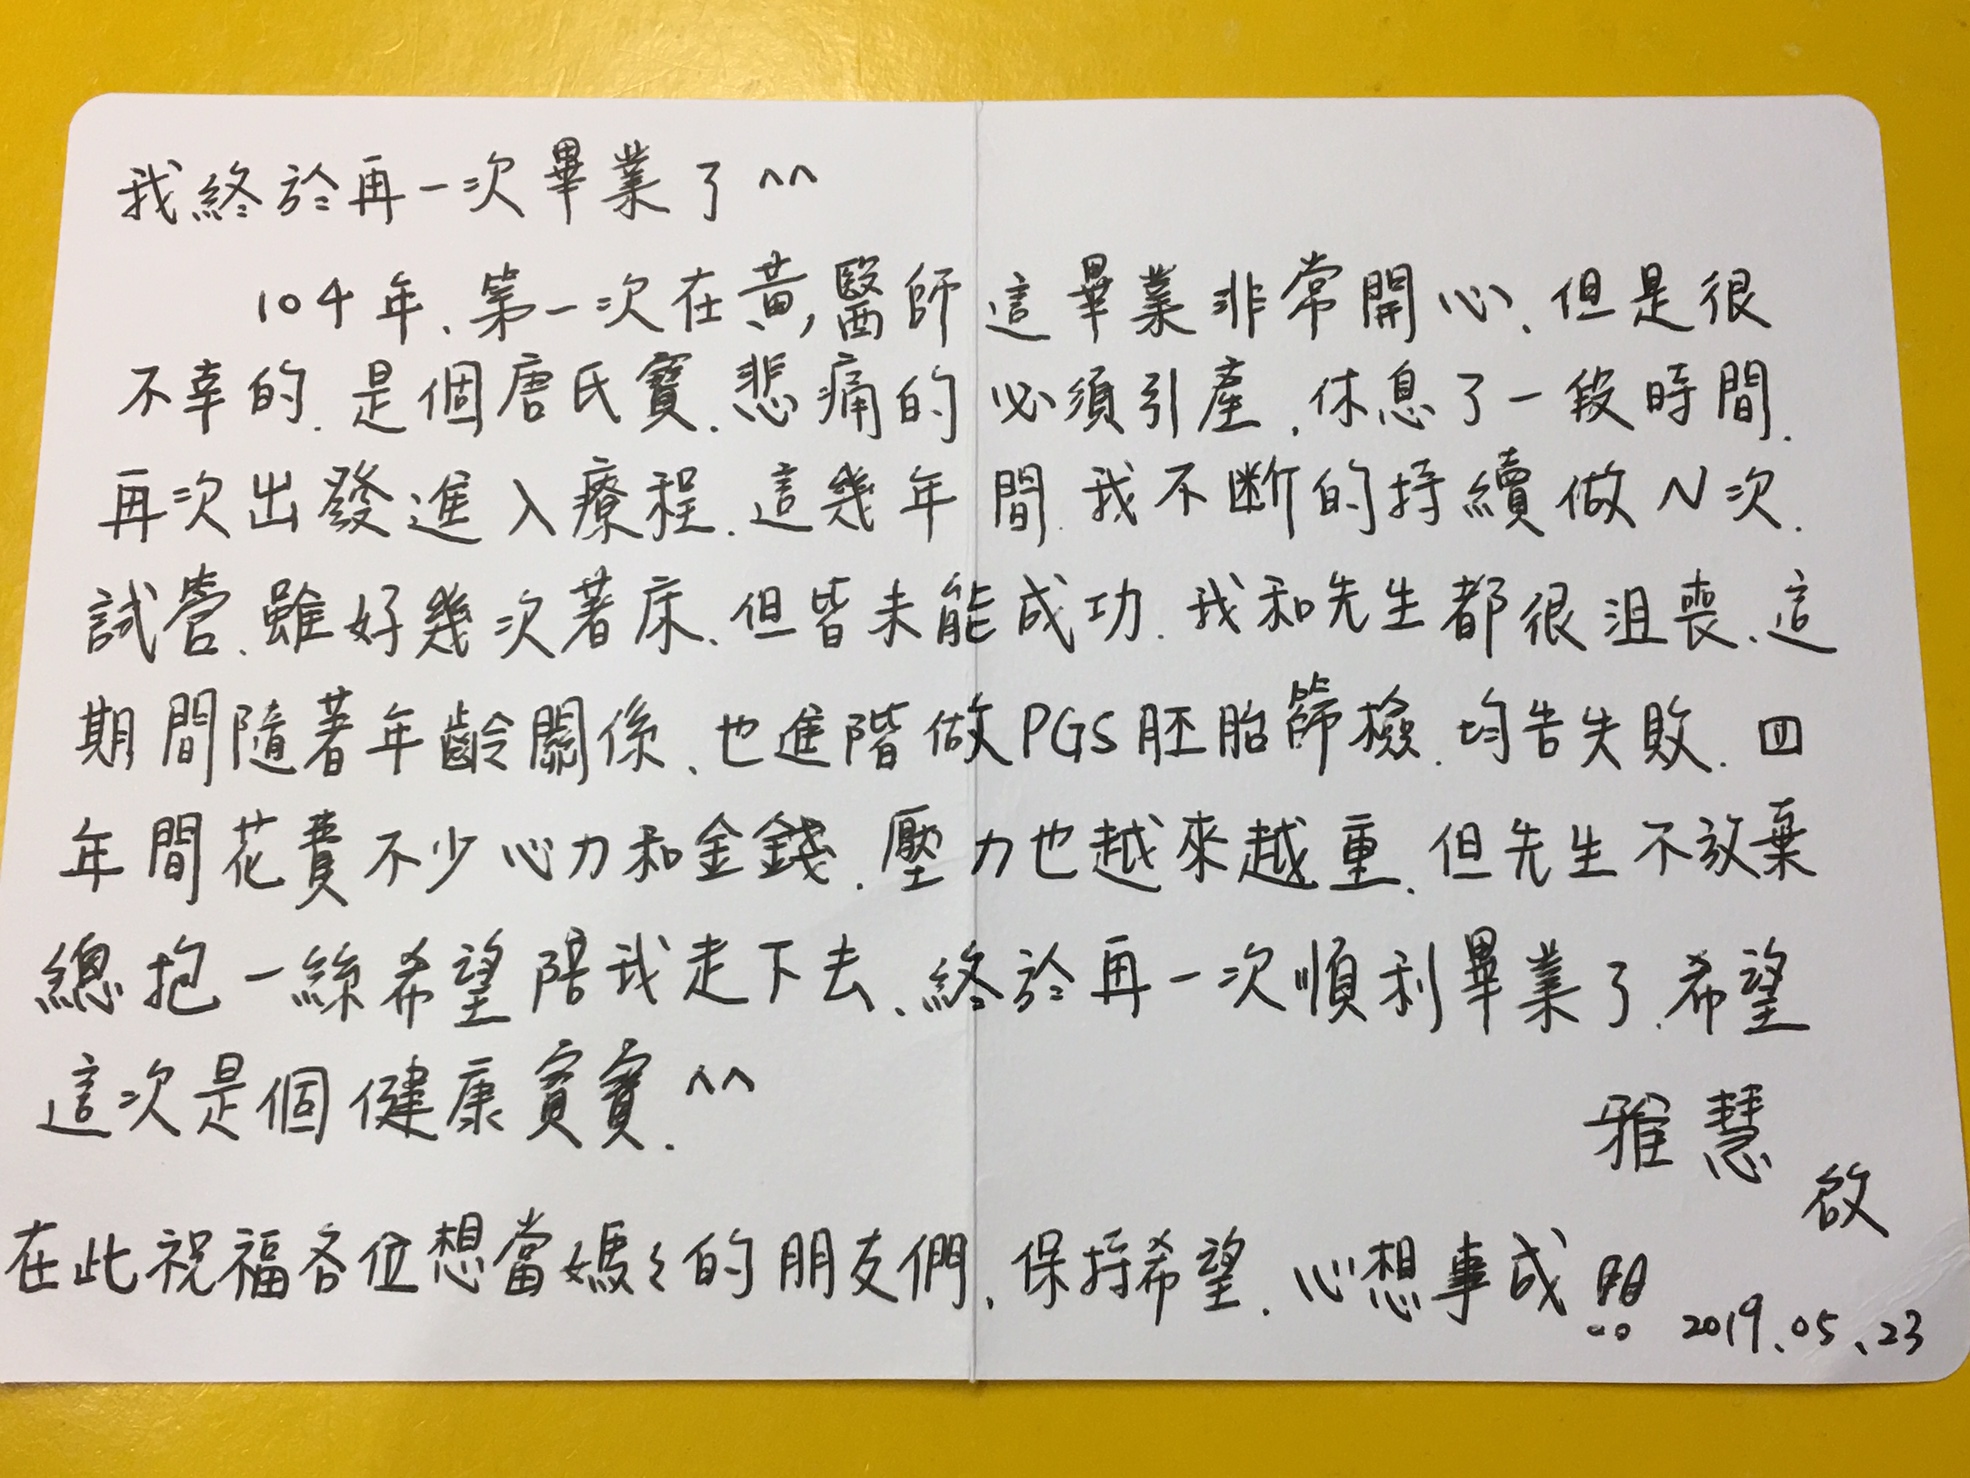 我終於再一次畢業了^^
104年、第一次在黃醫師這畢業非常開心、但是很
不幸的.是個唐氏寶.悲痛的必須引產.休息了一段時間.
再次出發進入療程.這幾年間.我不斷的持續做N次.
試管.雖好幾次著床、但皆未能成功.我和先生都很沮喪、這
期間隨著年齡關係、也進階做PGS胚胎篩檢.均告失敗.四
年間花費不少心力和金錢.壓力也越來越重.但先生不放棄
總抱一絲希望陪我走下去、終於再一次順利畢業了.希望
這次是個健康寶寶.^^
雅慧
啟
在此祝福各位想當媽々的朋友們、保持希望.心想事成!!
2019.05.23